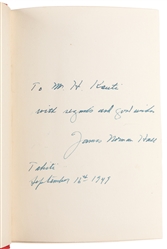 To Mr H Kautz
with regards and good wishes
James Norman Hall
Tahiti
September 16th 1949